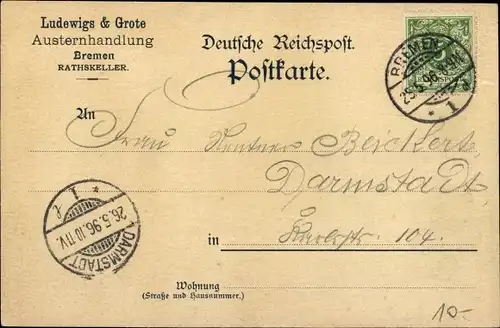 Ludewigs & Grote
Austernhandlung
Bremen
RATHSKELLER.
Deutsche Reichspost.
Postkarte.
BREMEN
25.5.96
* 1
An
Frau Rentner
Darmstadt
in
Karlstr. 104.
* 1
26.5.96.10 11V.
DARMSTADT
Wohnung
(Straße und Hausnummer.)
10-